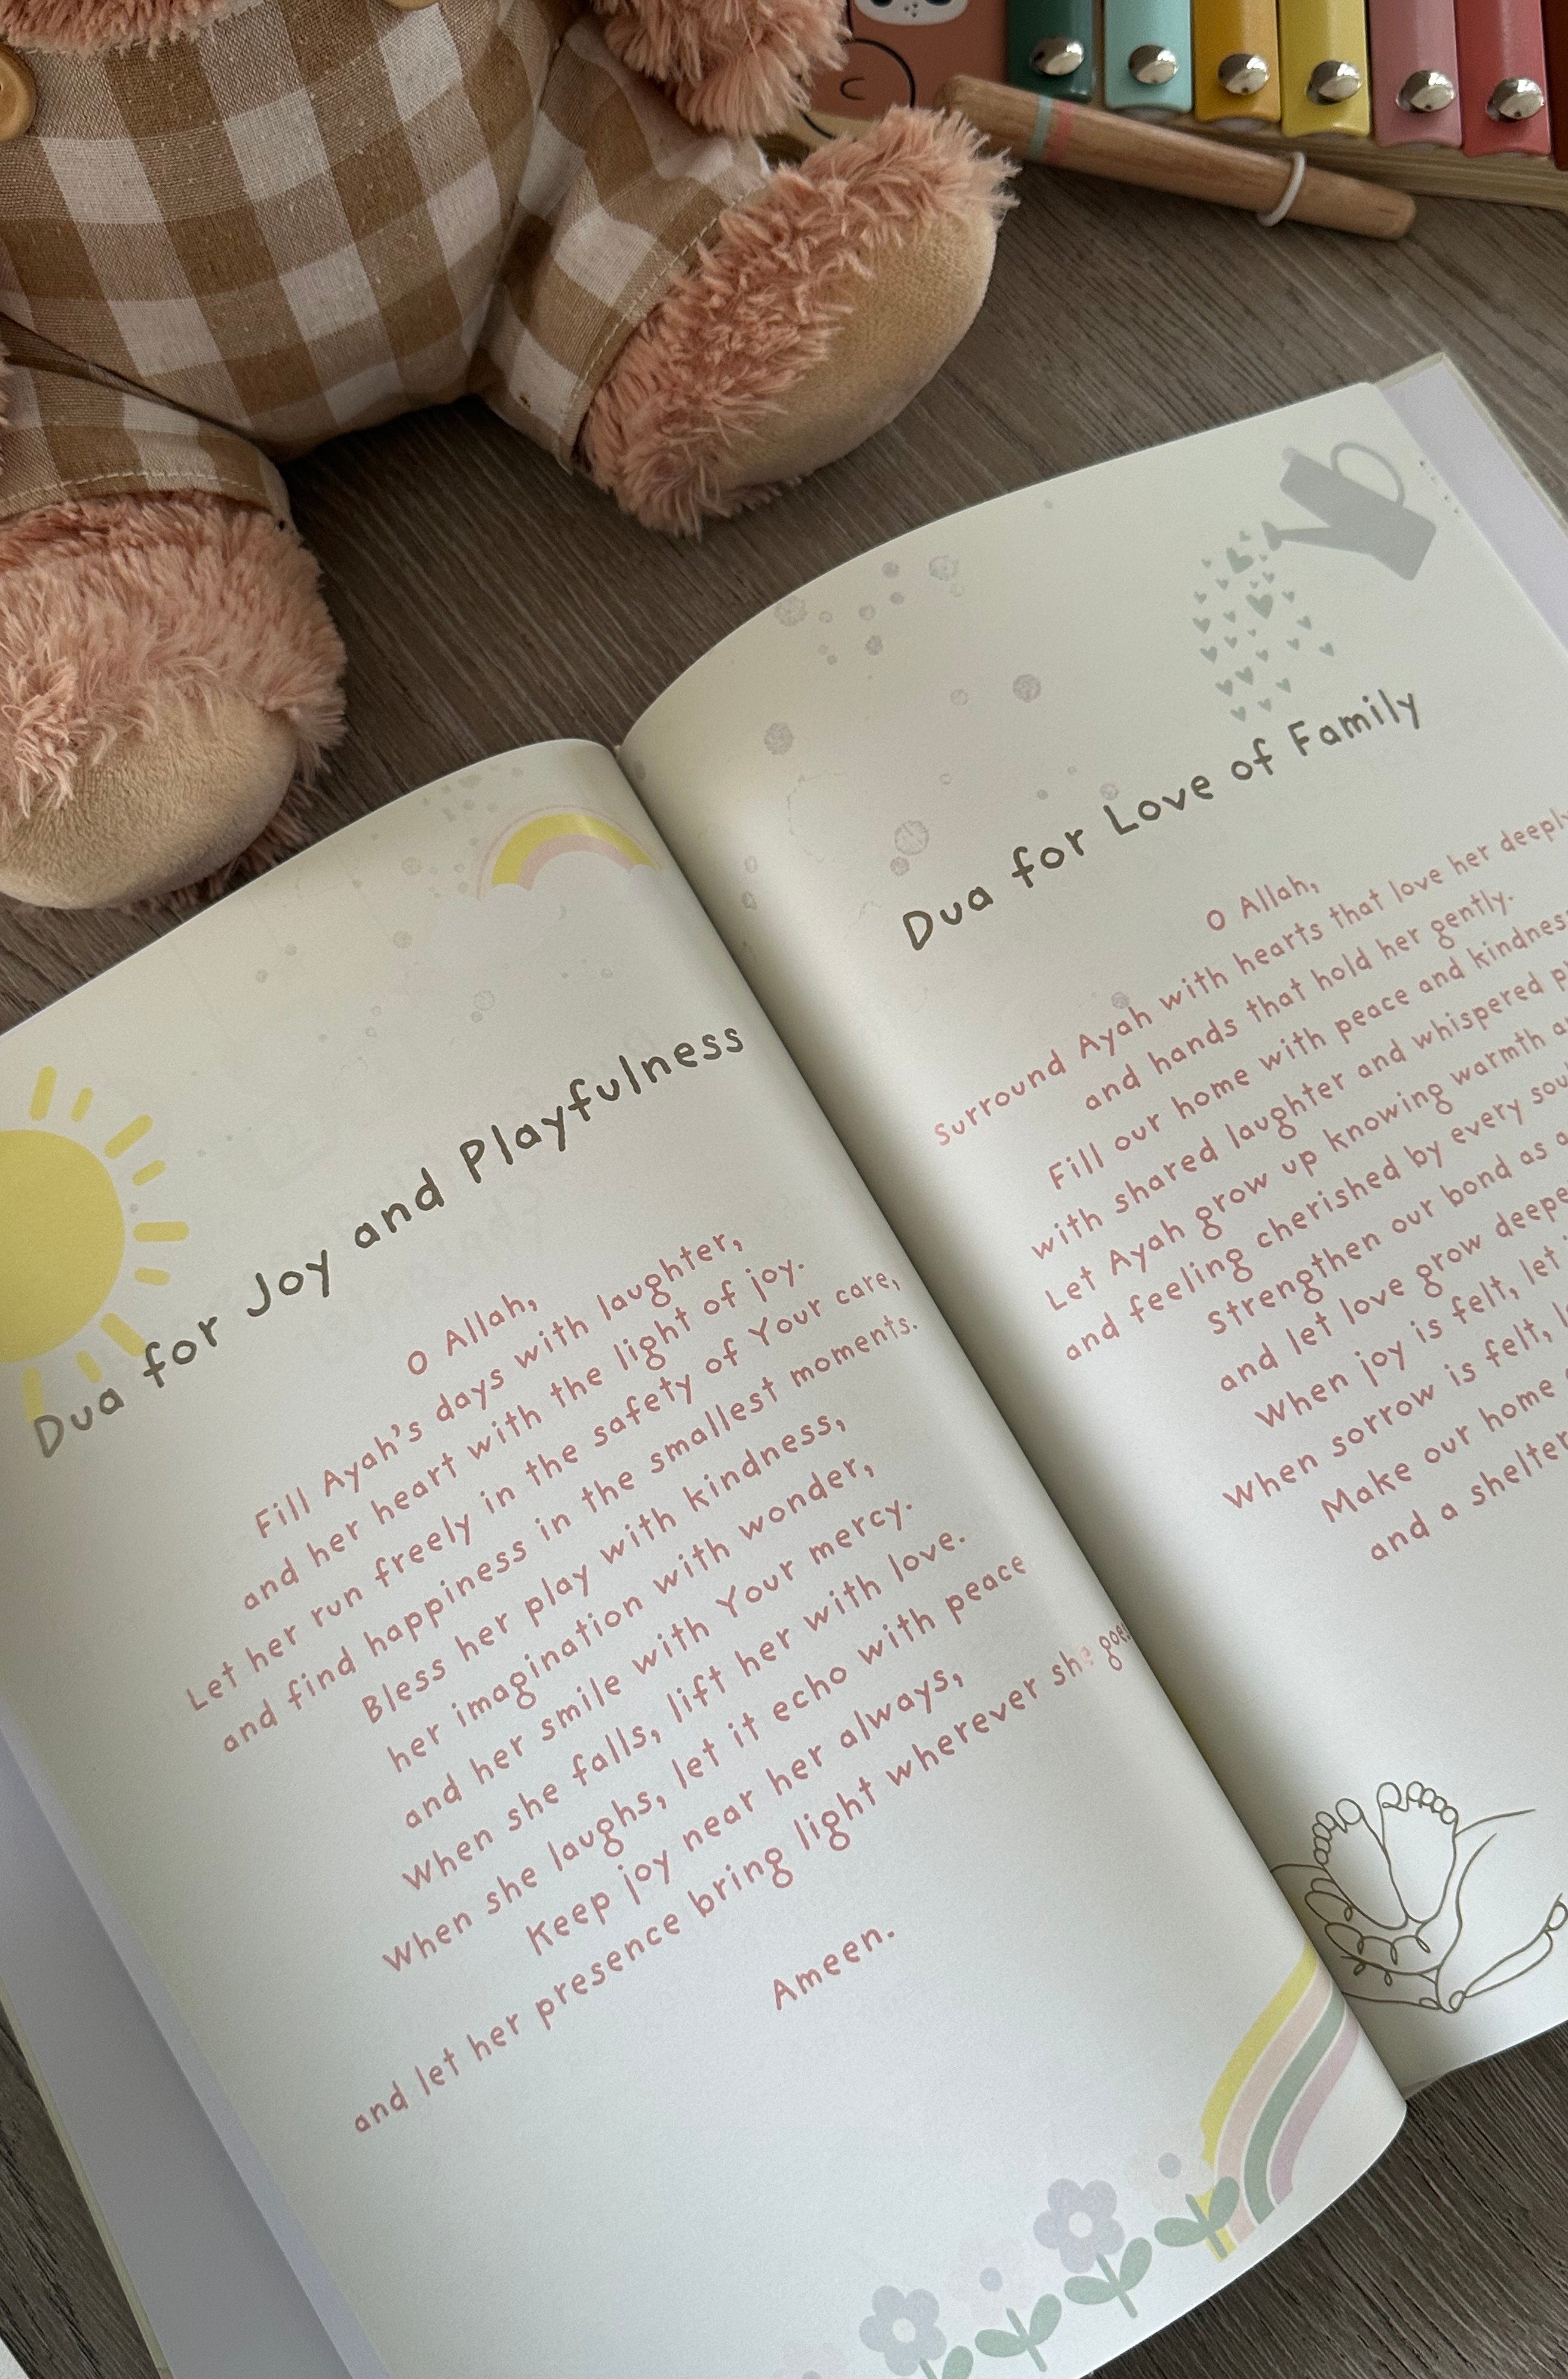 Dua for Joy and Playfulness
O Allah,
Fill Ayah's days with laughter,
and her heart with the light of joy.
Let her run freely in the safety of Your care,
and find happiness in the smallest moments.
Bless her play with kindness,
her imagination with wonder,
and her smile with Your mercy.
When she falls, lift her with love.
When she laughs, let it echo with peace
Keep joy near her always,
and let her presence bring light wherever she goes
Ameen.
Dua for Love of Family
O Allah,
Surround Ayah with hearts that love her deeply
and hands that hold her gently.
Fill our home with peace and kindness
with shared laughter and whispered
Let Ayah grow up knowing warmth
and feeling cherished by every
Strengthen our bond as a
and let love grow
When joy is felt, let
When sorrow is felt,
Make our home
and a shelter